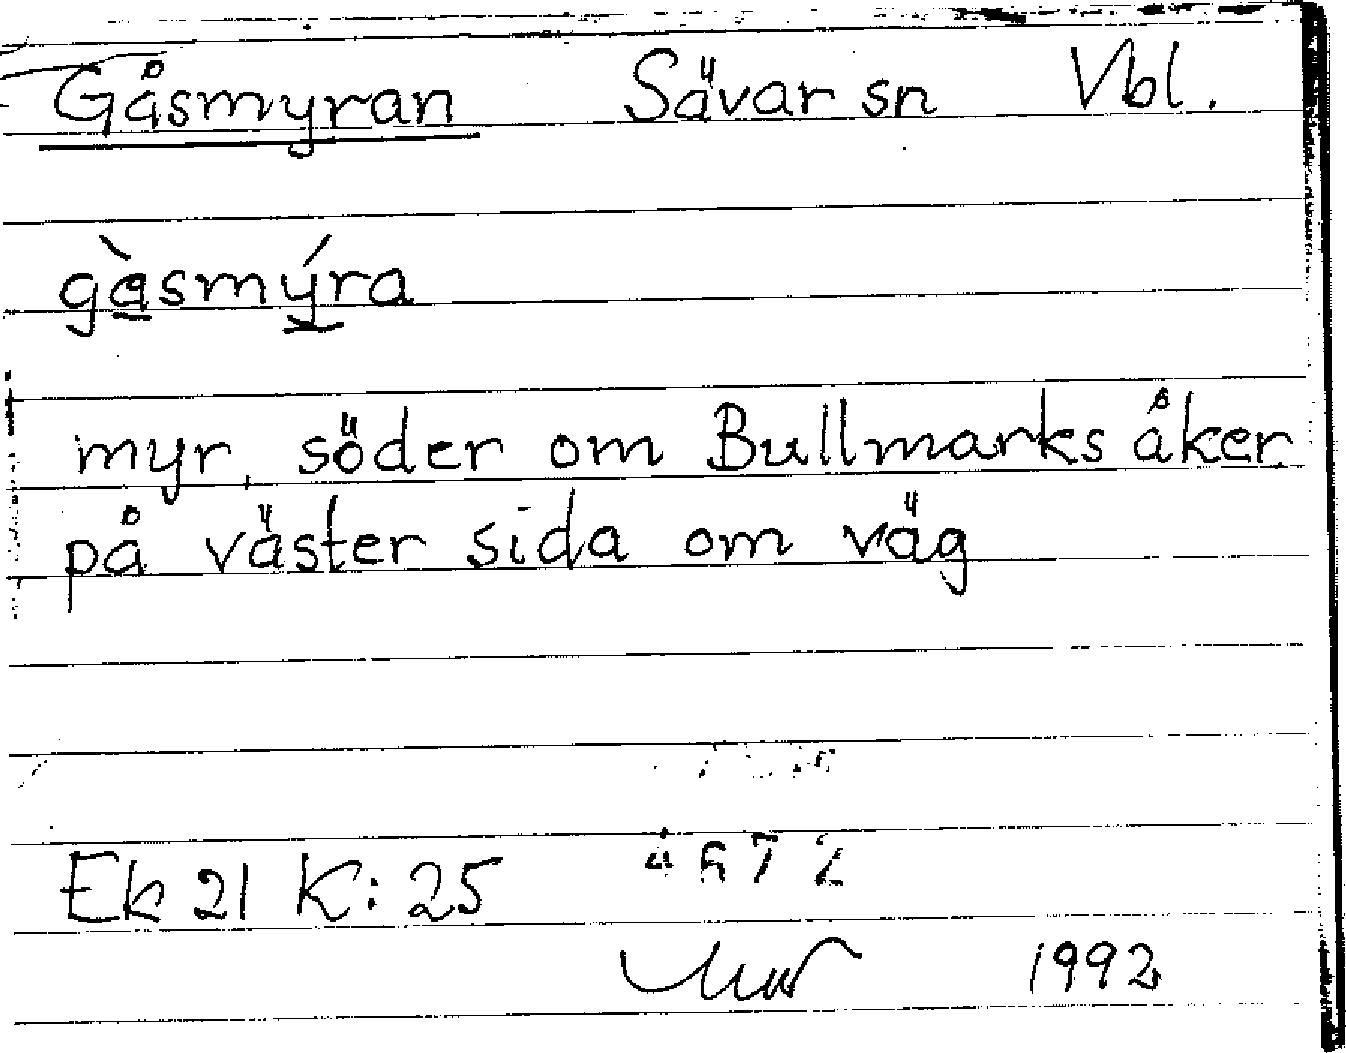 Gåsmyran Sävar sn Vbl.
gàsmýra
myr, söder om Bullmarks åker
på väster sida om väg
Ek 21 K: 25
1992